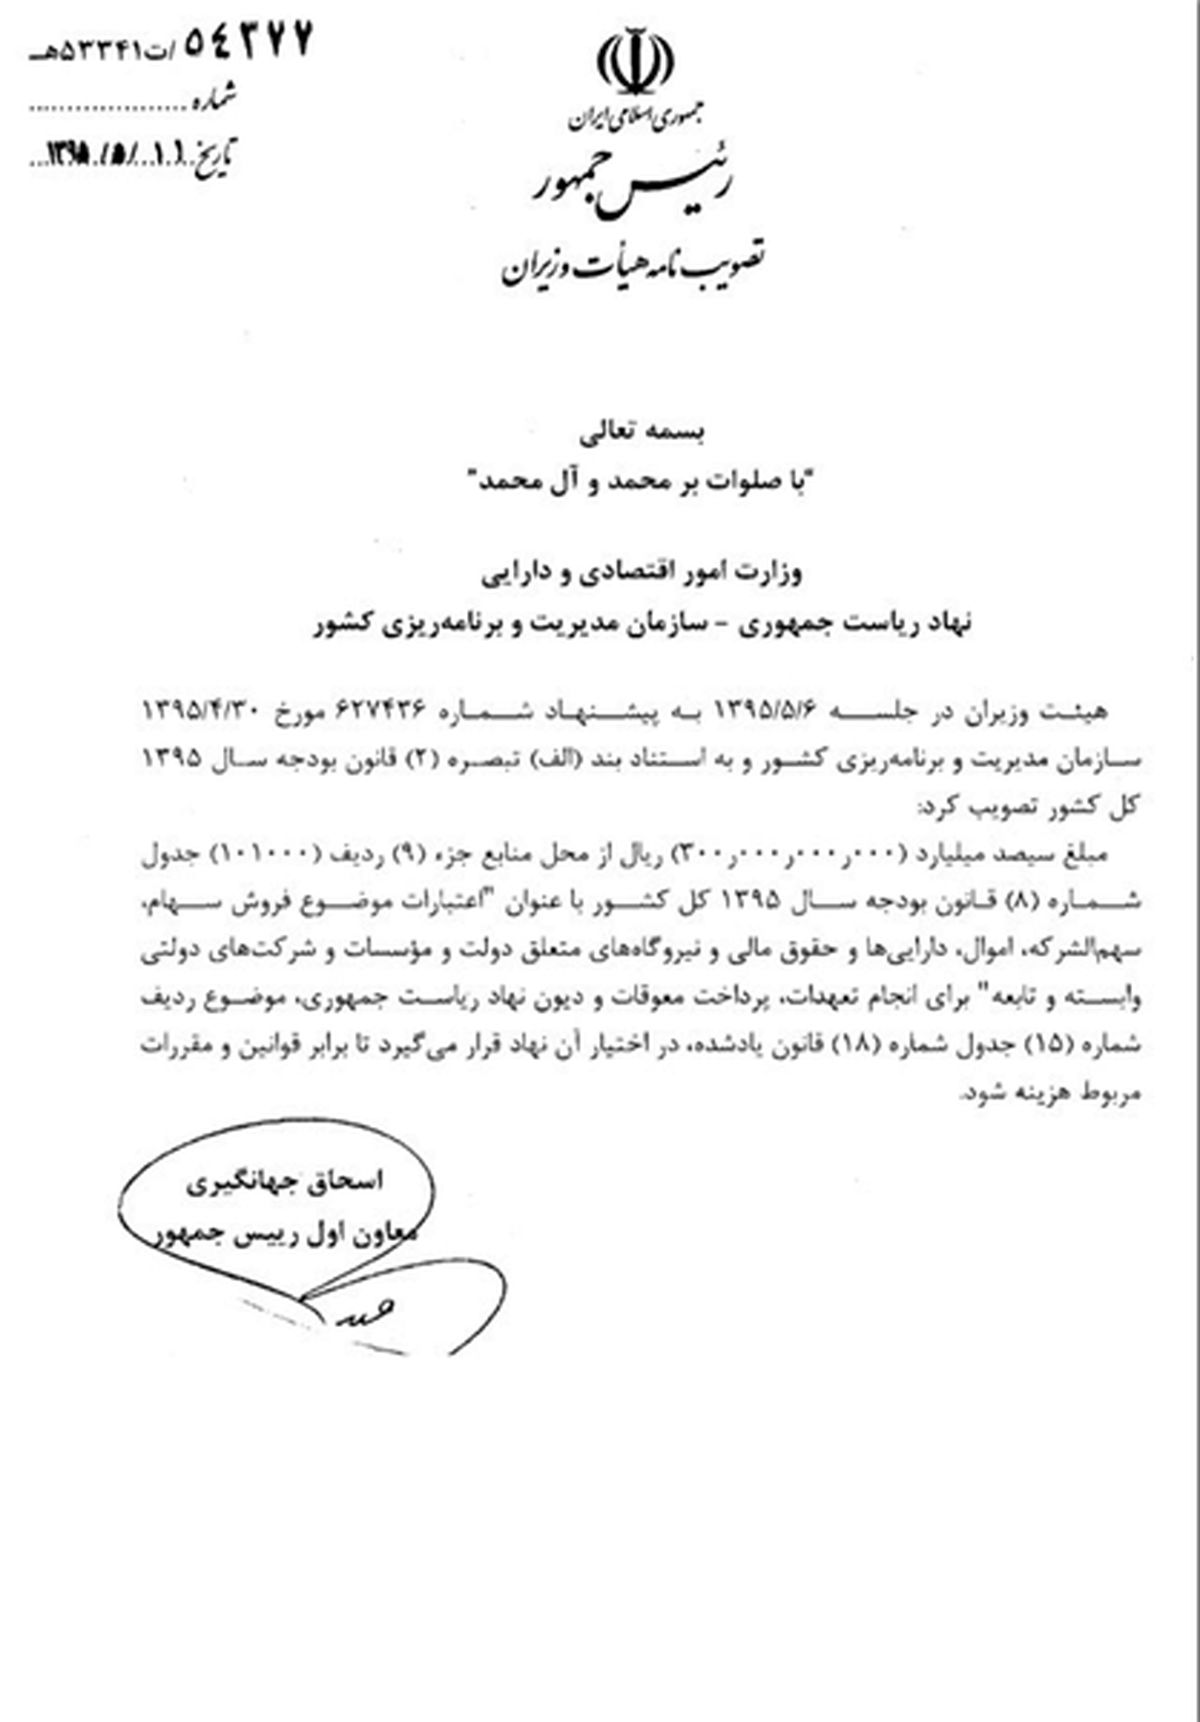 ۵۴۳۷۷/ت۵۳۳۴۱هـ
شماره
تاریخ ۱۳۹۵/۵/۱۰
جمهوری اسلامی ایران
رئیس جمهور
تصویب نامه هیأت وزیران
بسمه تعالی
"با صلوات بر محمد و آل محمد"
وزارت امور اقتصادی و دارایی
نهاد ریاست جمهوری – سازمان مدیریت و برنامه‌ریزی کشور
هیئت وزیران در جلسه ۱۳۹۵/۵/۶ به پیشنهاد شماره ۶۲۷۴۳۶ مورخ ۱۳۹۵/۴/۳۰
سازمان مدیریت و برنامه‌ریزی کشور و به استناد بند (الف) تبصره (۲) قانون بودجه سال ۱۳۹۵
کل کشور تصویب کرد:
مبلغ سیصد میلیارد (۳۰۰٫۰۰۰٫۰۰۰٫۰۰۰) ریال از محل منابع جزء (۹) ردیف (۱۰۱۰۰۰) جدول
شماره (۸) قانون بودجه سال ۱۳۹۵ کل کشور با عنوان "اعتبارات موضوع فروش سهام،
سهم‌الشرکه، اموال، دارایی‌ها و حقوق مالی و نیروگاه‌های متعلق دولت و مؤسسات و شرکت‌های دولتی
وابسته و تابعه" برای انجام تعهدات، پرداخت معوقات و دیون نهاد ریاست جمهوری، موضوع ردیف
شماره (۱۵) جدول شماره (۱۸) قانون یادشده، در اختیار آن نهاد قرار می‌گیرد تا برابر قوانین و مقررات
مربوط هزینه شود.
اسحاق جهانگیری
معاون اول رییس جمهور